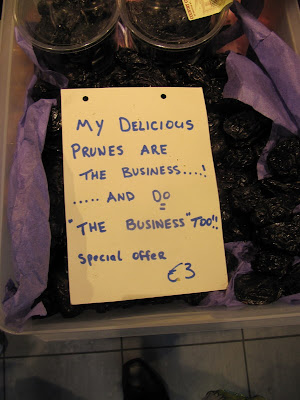 My Delicious
Prunes are
the Business....!
..... and Do
"the Business" too!!
Special offer
€3